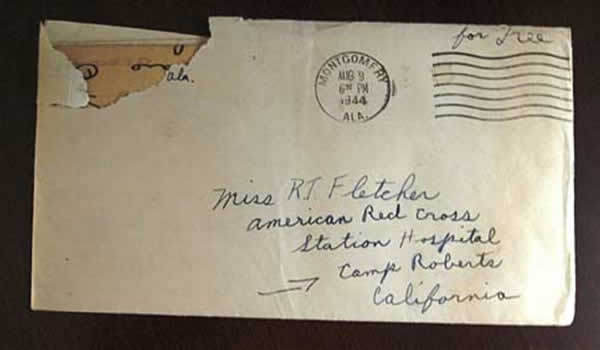 for Free
Ala.
MONTGOMERY
AUG 9
6 30 PM
1944
ALA.
Miss R.T. Fletcher
American Red Cross
Station Hospital
Camp Roberts
California